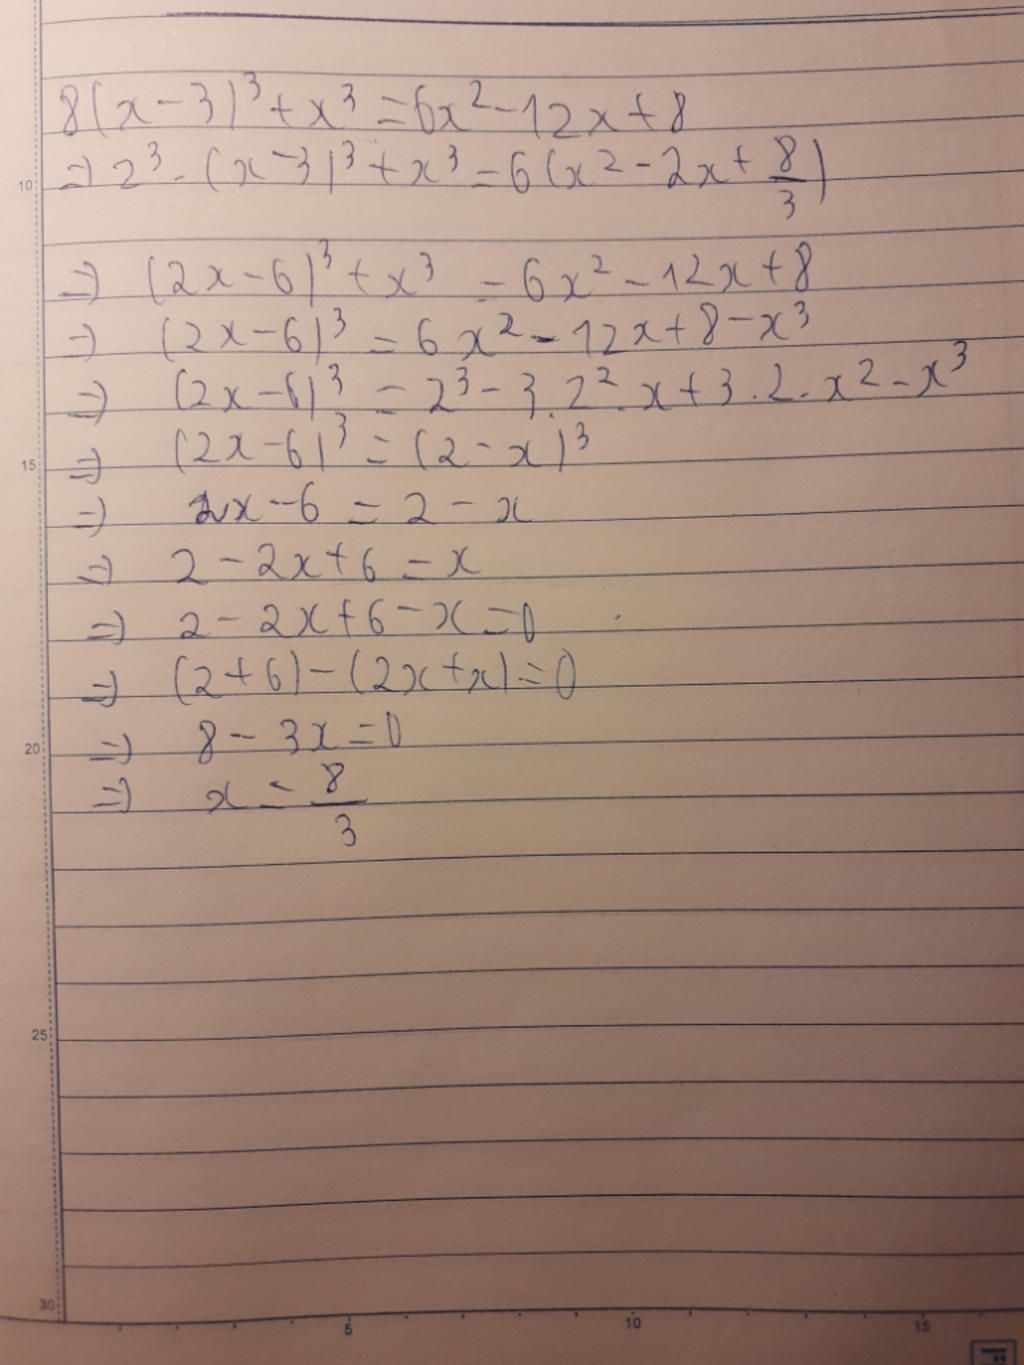 8(x-3)³+x³=6x²-12x+8
10 => 2³.(x-3)³+x³=6(x²-2x+8/3)
=> (2x-6)³+x³=6x²-12x+8
=> (2x-6)³=6x²-12x+8-x³
=> (2x-6)³=2³-3.2².x+3.2.x²-x³
15 => (2x-6)³=(2-x)³
=> 2x-6=2-x
=> 2-2x+6=x
=> 2-2x+6-x=0
=> (2+6)-(2x+x)=0
20 => 8-3x=0
=> x=8/3
25
30
5 10 15